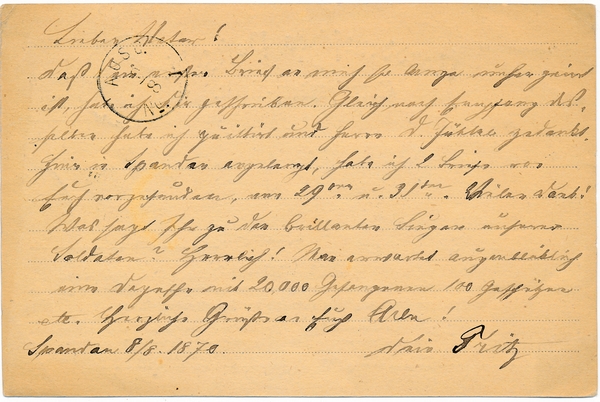 Lieber Vater!
Daß Dein erster Brief an mich so lange umher geirrt
ist, habe ich Dir geschrieben. Gleich nach Empfang des-
selben habe ich quittirt und Herrn D. gedankt.
Hier in Spandau angelangt, habe ich 2 Briefe von
Euch vorgefunden, vom 29ten u. 31ten. Vielen Dank!
Was sagt Ihr zu den brillanten Siegen unserer
Soldaten? Herrlich! Man erwartet augenblicklich
eine Depesche mit 20,000 Gefangenen 100 Geschützen
etc. Herzliche Grüße an Euch Alle!
Spandau 8/8. 1870. Dein Fritz